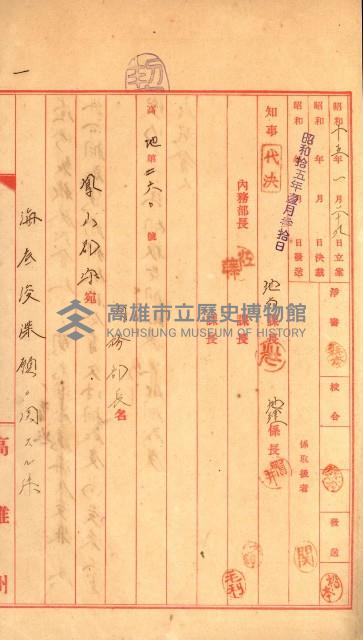 昭和十五年一月二十九日立案
昭和 年 月 日決裁
昭和 年 月 日發送
昭和拾五年壹月參拾日
淨書
校合
發送
係取扱者
知事
代決
內務部長
地方課長
地理係長
課長
課長
高地第二六〇號
務部長名
鳳山郡守宛
海底浚渫願ニ関スル件
高雄州
高雄市立歷史博物館
KAOHSIUNG MUSEUM OF HISTORY